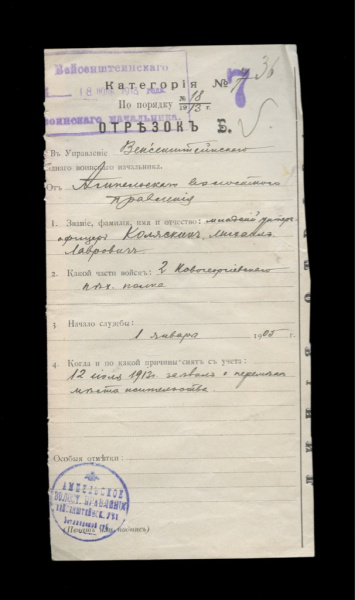 Вейсенштейнскаго
18 1913 года
воинскаго начальника.
36
Категорія № 7
По порядку № 18
1913 г.
ОТРѢЗОКЪ Б.
Въ Управленіе Вейсенштейнскаго
уѣзднаго воинскаго начальника.
Отъ Ампельскаго волостного
правленія
1. Званіе, фамилія, имя и отчество: младшій унтеръ-
офицеръ Коляскинъ, Михаилъ
Лавровичъ.
2. Какой части войскъ: 2 Новогеоргіевскаго
пѣх. полка
3 Начало службы:
1 января 1905 г.
4. Когда и по какой причинѣ снятъ съ учета:
12 іюля 1913 г. о перемѣнѣ
мѣста жительства
Особыя отмѣтки:
АМПЕЛЬСКОЕ
ВОЛОСТ. ПРАВЛЕНІЕ
ВЕЙСЕНШТЕЙНСК. У.
Эстляндской губ.
(Печать или подпись)